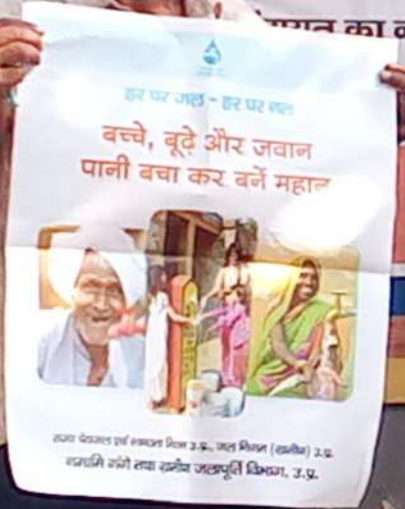 पंचायत का
हर घर जल - हर घर नल
बच्चे, बूढ़े और जवान
पानी बचा कर बनें महान
राज्य पेयजल एवं स्वच्छता मिशन उ.प्र., जल निगम (ग्रामीण) उ.प्र.
नमामि गंगे तथा ग्रामीण जलापूर्ति विभाग, उ.प्र.